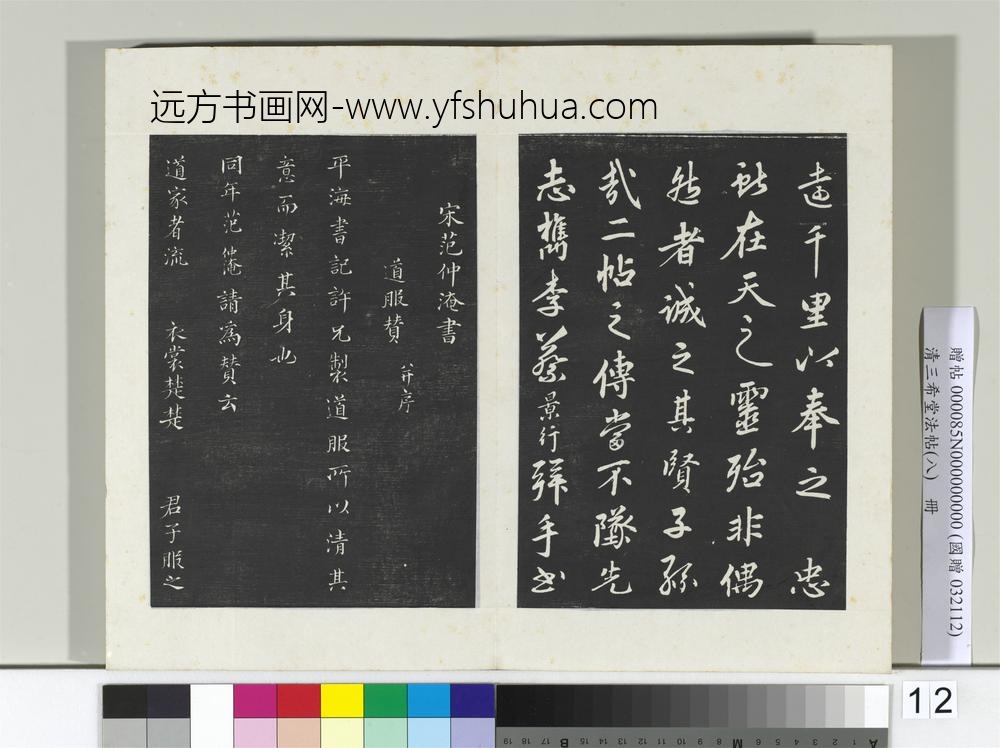 远方书画网-www.yfshuhua.com
遠千里以奉之 忠
獻在天之靈殆非偶
然者誠之其賢子孫
哉二帖之傳當不墜先
志檇李蔡景行拜手書
宋范仲淹書
道服贊 并序
平海書記許兄製道服所以清其
意而潔其身也
同年范仲淹請為贊云
道家者流 衣裳楚楚 君子服之
贈帖 000085N000000000 (國贈 032112)
清三希堂法帖(八) 冊
12